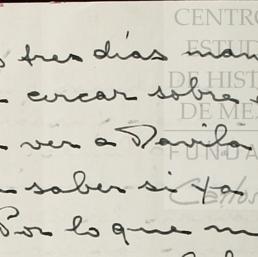 tres días man
cercar sobre
ver a Davila
saber si ya
Por lo que m
CENTRO
ESTUD
DE HIST
DE MÉ
FUNDA
Carlos